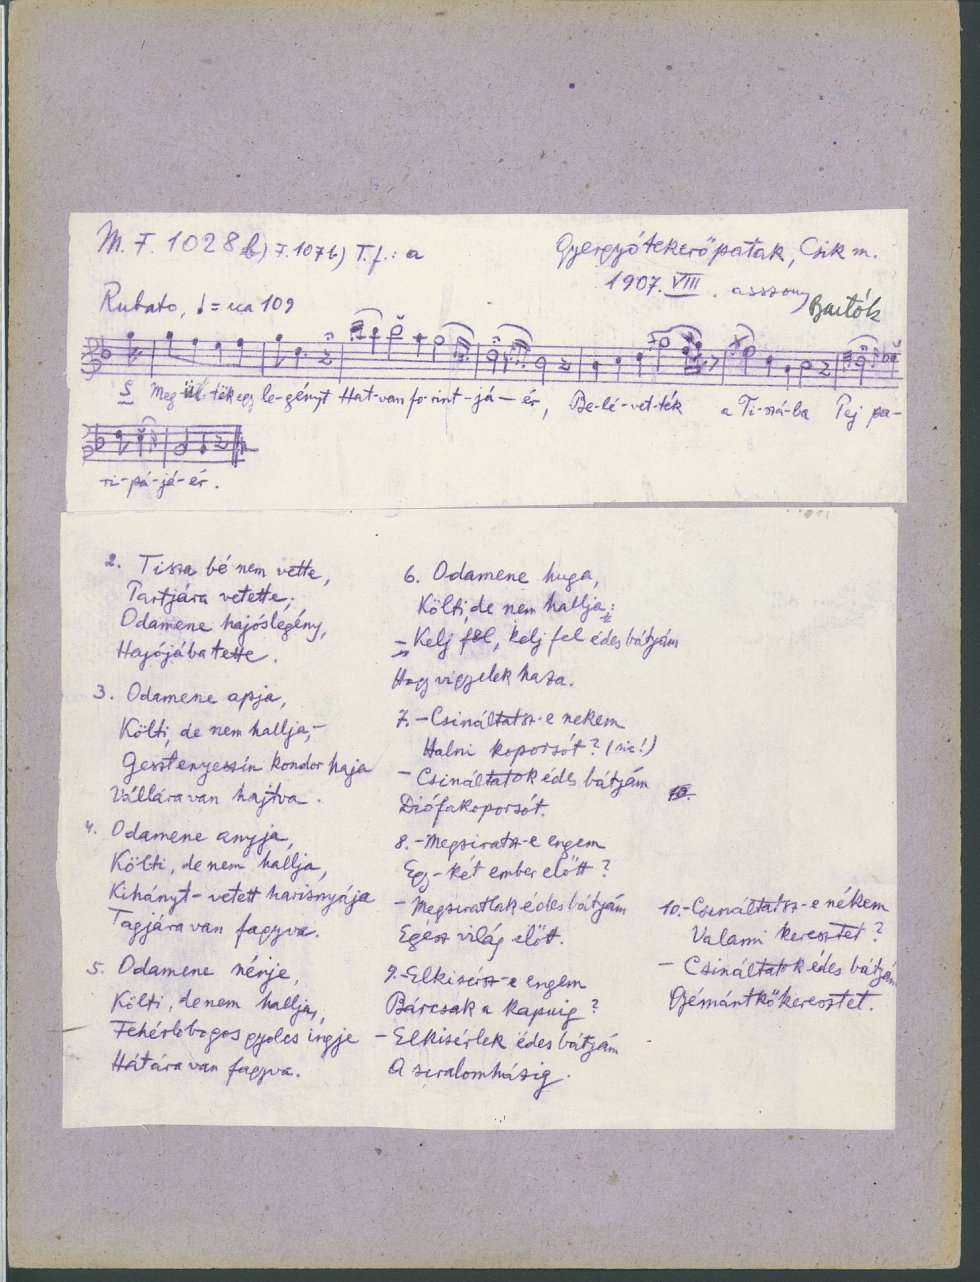 M. F. 1028 b) F. 107 b) T. f.: a
Gyergyótekerőpatak, Csik m.
1907. VIII. asszony
Bartók
Rubato, ♩ = cca 109
5 Meg-öl-ték egy le-gényt Hat-van fo-rint-já-ér, Be-lé-vet-ték a Ti-szá-ba Pej pa-
ri-pá-já-ér.
2. Tisza bé nem vette,
Partjára vetette;
Odamene hajóslegény,
Hajójába tette.
3. Odamene apja,
Költi, de nem hallja,-
Gesztenyeszín kondor haja
Vállára van hajtva.
4. Odamene anyja,
Költi, de nem hallja,
Kihányt-vetett harisnyája
Tagjára van fagyva.
5. Odamene nénje,
Költi, de nem hallja,
Fehérlobogos gyolcs ingje
Hátára van fagyva.
6. Odamene huga,
Költi, de nem hallja:
- Kelj fel, kelj fel édes bátyám
Hogy vigyelek haza.
7. - Csináltatsz-e nekem
Halni koporsót? (sic!)
- Csináltatok édes bátyám
Diófakoporsót.
8. - Megsiratsz-e engem
Egy-két ember előtt?
- Megsiratlak édes bátyám
Egész világ előtt.
9. - Elkisérsz-e engem
Bárcsak a kapuig?
- Elkisérlek édes bátyám
A siralomházig.
10.
10. - Csináltatsz-e nékem
Valami keresztet?
- Csináltatok édes bátyám
Gyémántkőkeresztet.